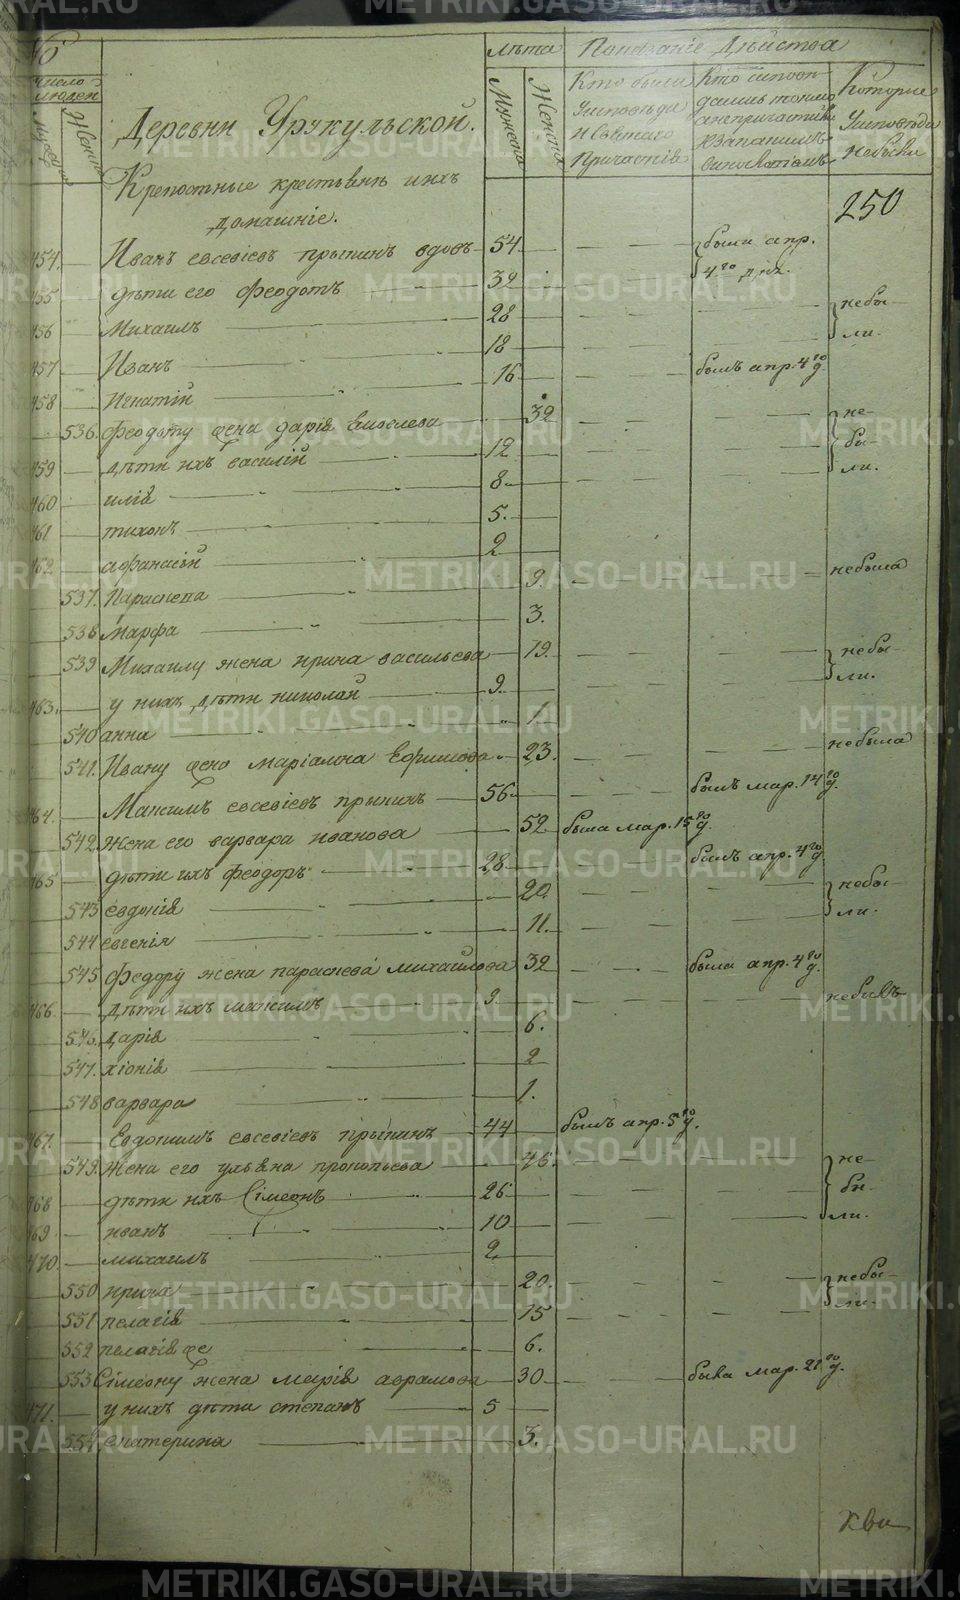 лѣта Показаніе Дѣйства
число людей
Мужеска Женска
Мужеска Женска
Кто были исповѣди и святаго причастія
Кто исповѣдались токмо а не причастив.
Которые исповѣди небыли
Деревни Урукульской.
Крепостные крестьянѣ и ихъ
домашніе.
250
454. Иванъ евсевіевъ прыпинъ вдовъ 54 были апр.
455 дѣти его Феодотъ 39 4го дня.
456 Михаилъ 28 небы-
457 Иванъ 18 ли.
458 Игнатій 16 былъ апр. 4го д.
536. Феодоту жена дарія 39 не-
459 дѣти ихъ василій 12 бы-
460 илія 8 ли.
461 тихонъ 5.
462 афанасій 2
537. Параскева 9. небыла
538 Марфа 3.
539 Михаилу жена ирина васильева 19. небы-
463. у нихъ дѣти николай 9. ли.
540 анна 1.
541. Ивану жена маріамна Ефимова 23. небыла
464. Максимъ евсевіевъ прыпинъ 56. былъ мар. 14го д.
542. Жена его варвара иванова 52 была мар. 15го д.
465 дѣти ихъ феодоръ 28 былъ апр. 4го д.
543 евдокія 20. небы-
544 евгенія 11. ли.
545 федору жена параскева михайлова 32 была апр. 4го д.
466. дѣти ихъ максимъ 9. небывъ
546. дарія 6.
547. хіонія 2
548 варвара 1.
467. Евдокимъ евсевіевъ прыпинъ 44 былъ апр. 5го д.
549. Жена его ульяна прокопьева 45. не-
468 дѣти ихъ Сімеонъ 26 бы-
469 иванъ 10 ли.
470. михаилъ 2
550 ирина 20. небы-
551 пелагія 15 ли.
552 пелагія же 6.
553 Сімеону жена марія аврамова 30 была мар. 21го д.
471. у нихъ дѣти степанъ 5
554 екатерина 3.
METRIKI.GASO-URAL.RU